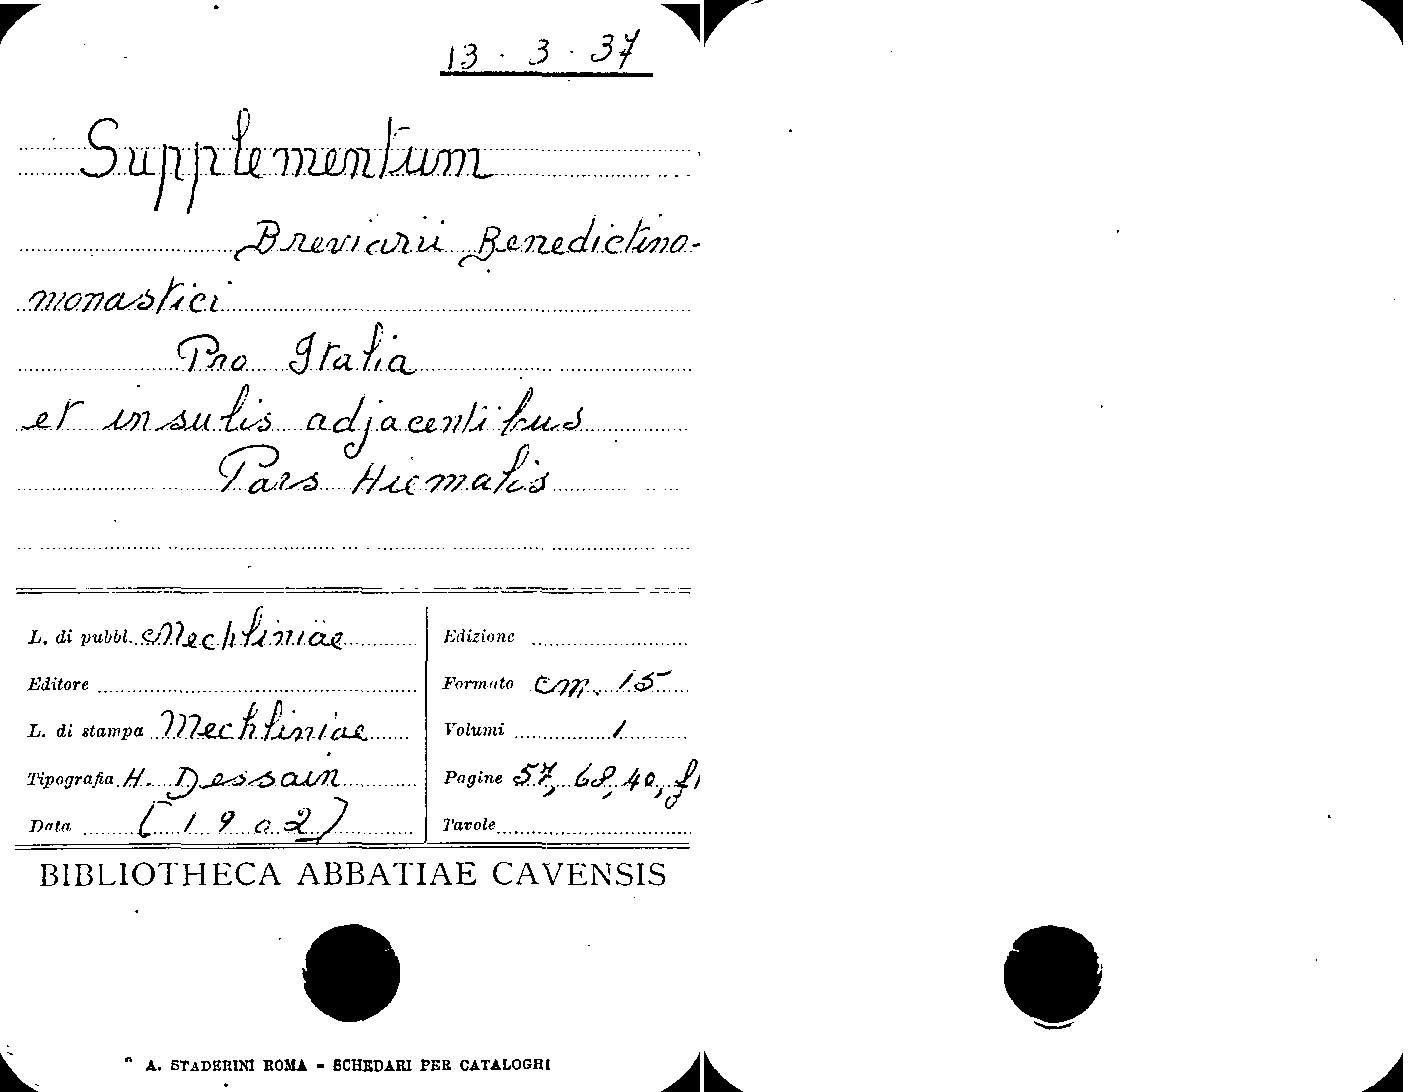 13 - 3 - 37
Supplementum
Breviarii Benedictino-
monastici
Pro Italia
et insulis adjacentibus
Pars Hiemalis
L. di pubbl. Mechliniae
Editore
L. di stampa Mechliniae
Tipografia H. Dessain
Data [1902]
Edizione
Formato cm. 15
Volumi 1
Pagine 57, 68, 40,
Tavole
BIBLIOTHECA ABBATIAE CAVENSIS
A. STADERINI ROMA - SCHEDARI PER CATALOGHI